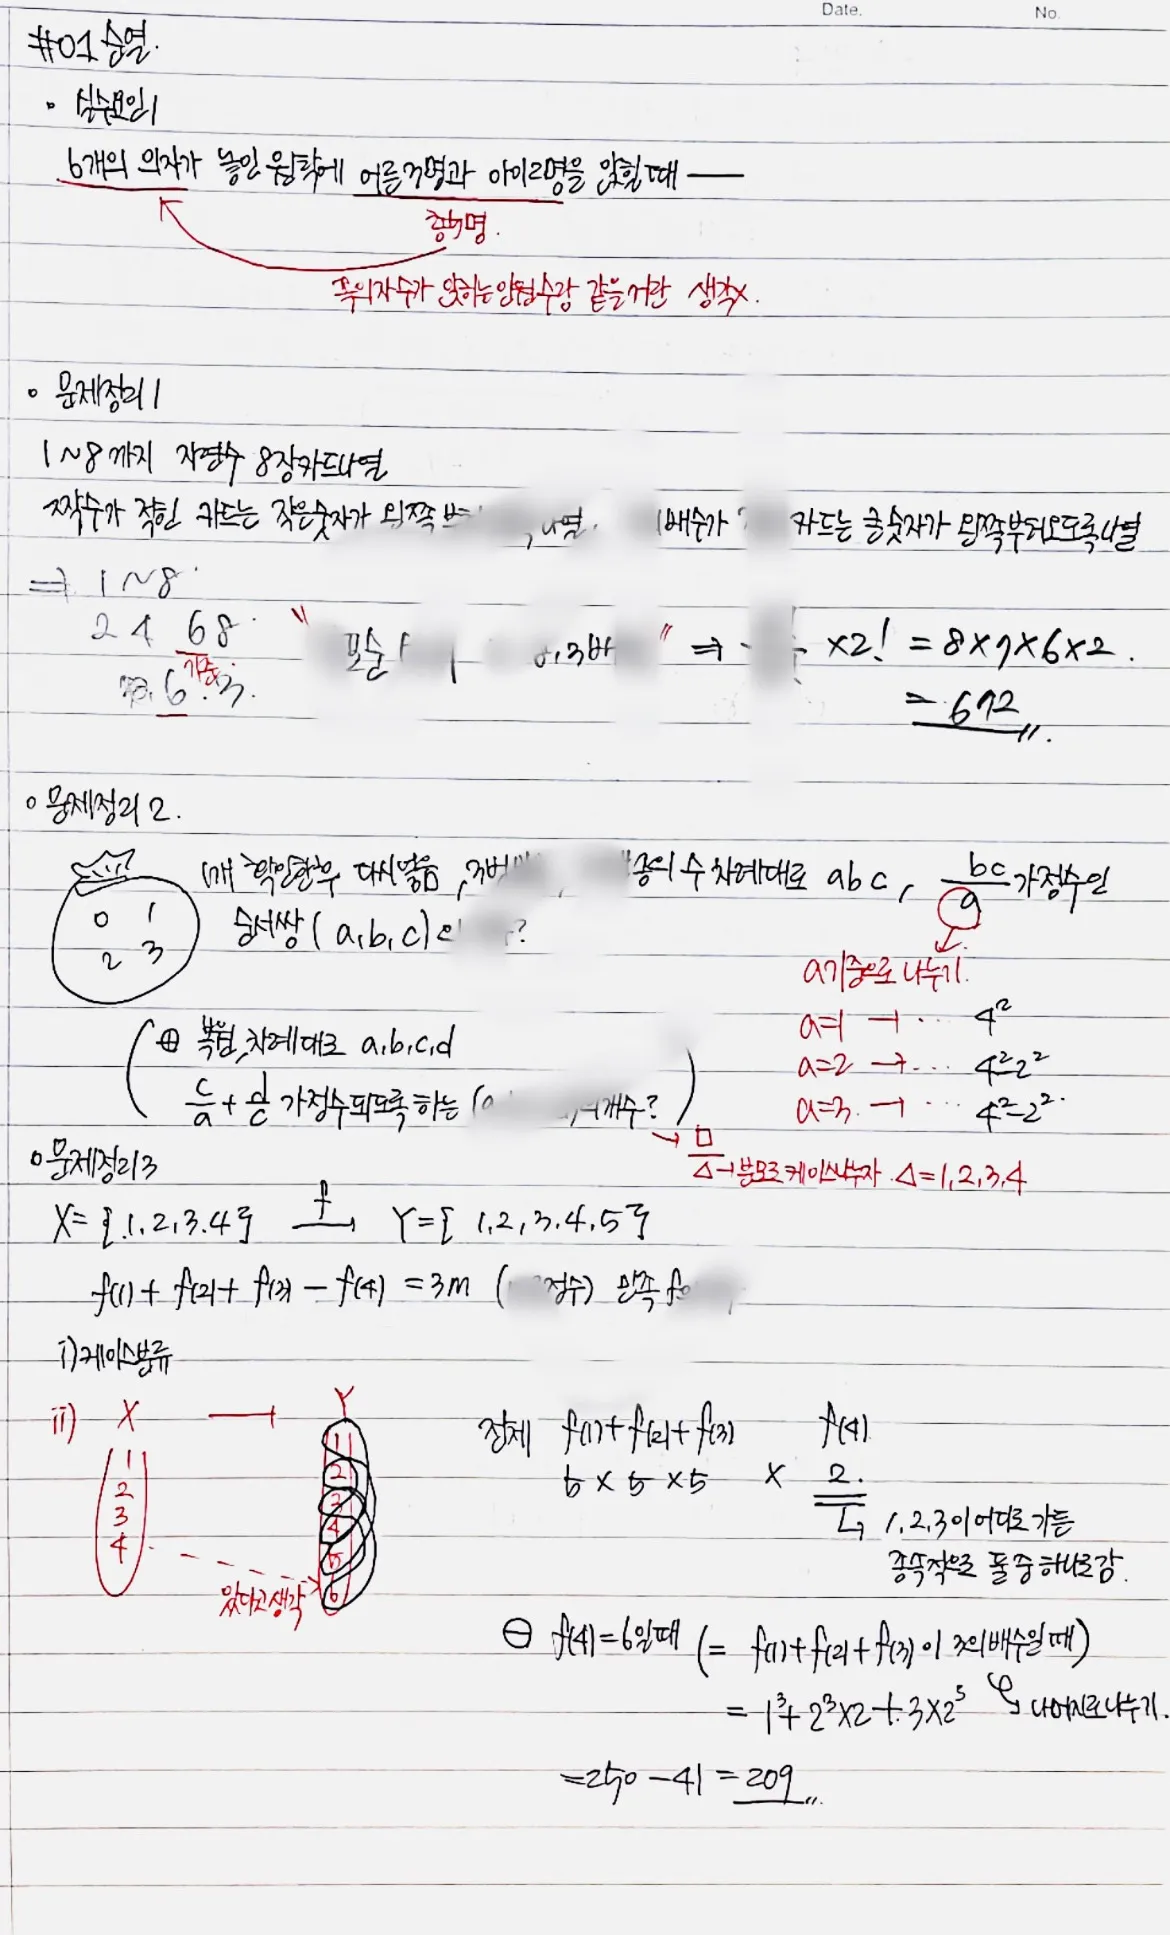 Date. No.
#01 순열.
실수모인1
6개의 의자가 놓인 원탁에 어른3명과 아이2명을 앉힐때 —
총5명.
꼭의자수가 앉히는인원수랑 같을거란 생각x.
문제정리1
1~8까지 자연수 8장카드나열
짝수가 적힌 카드는 작은숫자가 왼쪽 나열. 배수가 카드는 큰숫자가 왼쪽부터오도록나열
⇒ 1~8.
2 4 6 8.
기준
6. 3.
" 모순 " ⇒ ×2! = 8×7×6×2.
= 672
문제정리 2.
1매 확인한후 다시넣음, 3번 의 수 차례대로 a b c, bc/a 가정수인
0 1
2 3
순서쌍 (a, b, c) ?
a기준으로 나누기.
a=1 → ⋯ 4²
⊕ 복원, 차례대로 a, b, c, d
a=2 → ⋯ 4²-2²
c/a + d/c 가정수되도록 하는 ( 의개수?)
a=3. → ⋯ 4²-2².
→ □/△ → 분모로 케이스나누자. △=1, 2, 3, 4
문제정리3
X={1, 2, 3, 4} f→ Y={1, 2, 3, 4, 5}
f(1)+ f(2)+ f(3) - f(4) = 3m ( 정수) 만족
i)케이스분류
ii) X → Y
1 2 3 4
1 2 3 4 5 6
있다고생각
전체 f(1)+f(2)+f(3) f(4)
5 × 5 × 5 × 2.
↳ 1, 2, 3이 어디로 가든
종속적으로 둘 중 하나로감.
⊖ f(4)=6일때 (= f(1)+f(2)+f(3)이 3의배수일때)
= 1³+2³×2+3×2³ ↳ 나머지로나누기.
=250-41=209